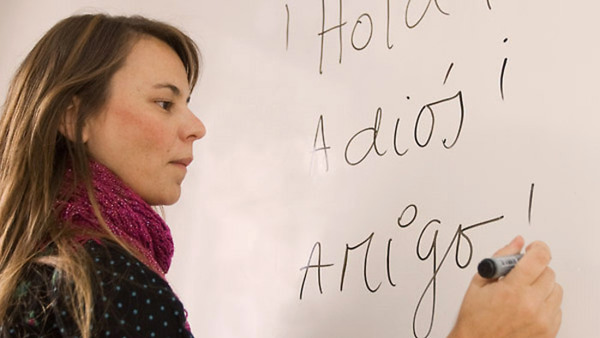 ¡Hola!
Adiós ¡
Amigo!